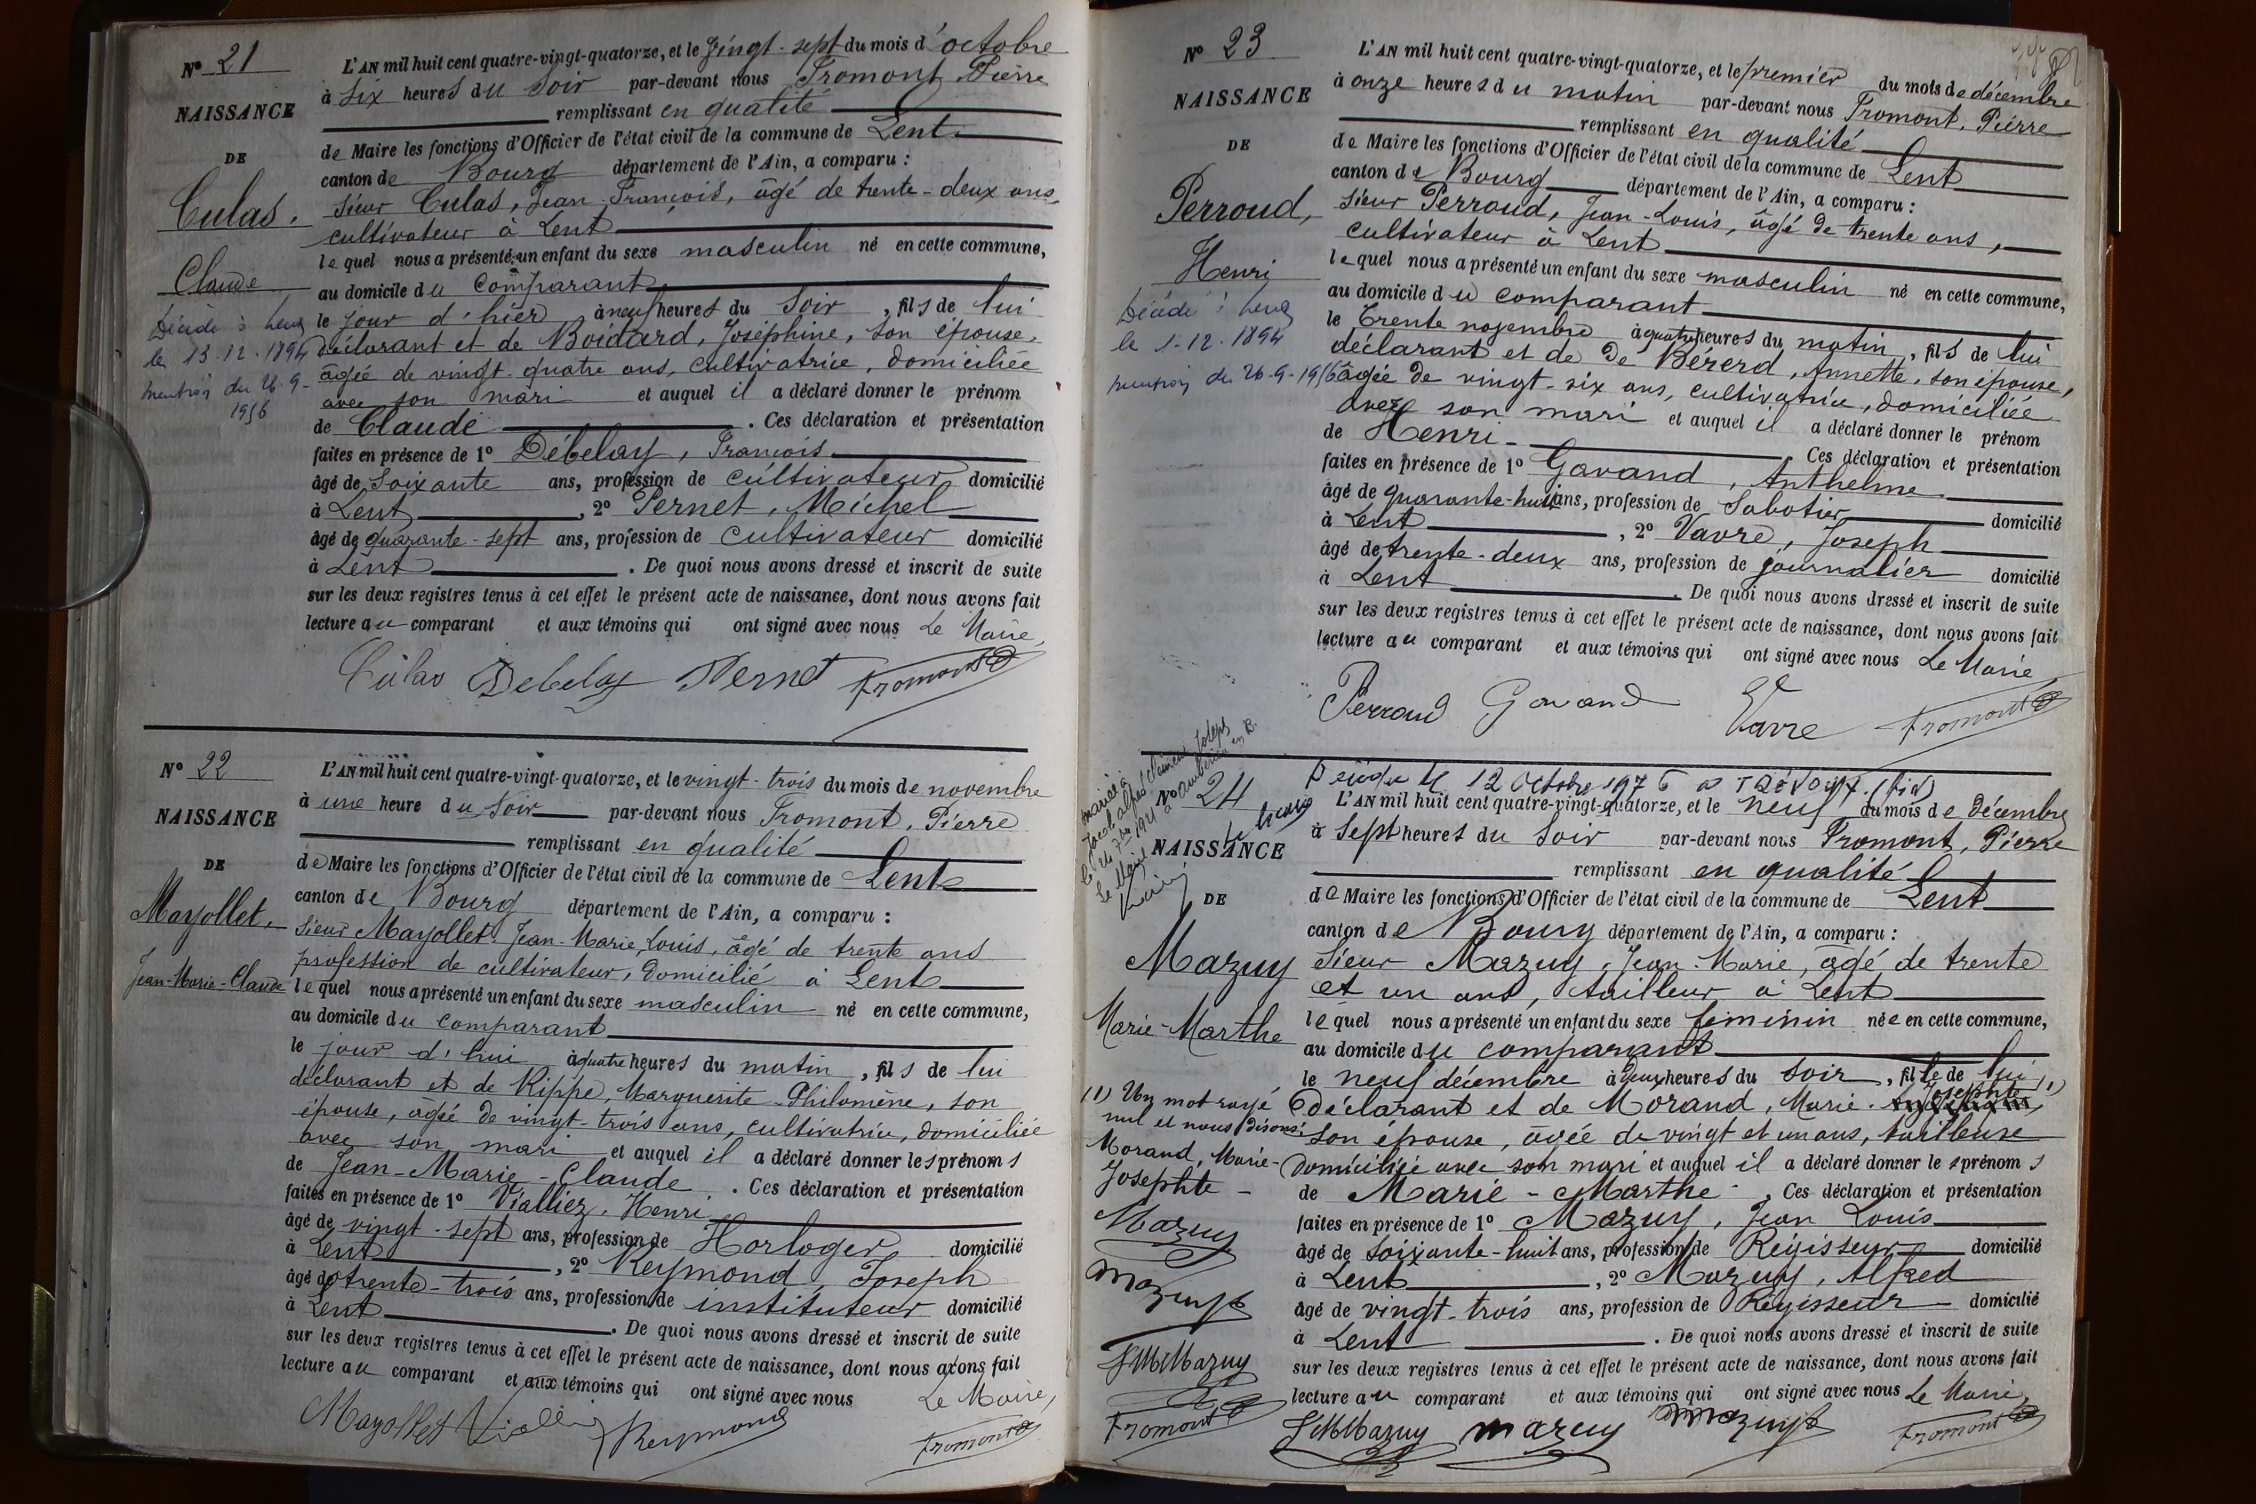 N° 21
NAISSANCE
DE
Culas,
Claude
Décédé à Lent
le 13.12.1894
mention du 26-9-
1956
L'AN mil huit cent quatre-vingt-quatorze, et le vingt-sept du mois d'octobre
à six heures du soir par-devant nous Fromont, Pierre
remplissant en qualité
de Maire les fonctions d'Officier de l'état civil de la commune de Lent
canton de Bourg département de l'Ain, a comparu :
sieur Culas, Jean François, âgé de trente-deux ans,
cultivateur à Lent
lequel nous a présenté un enfant du sexe masculin né en cette commune,
au domicile du comparant
le jour d'hier à neuf heures du soir, fils de lui
déclarant et de Boidard, Joséphine, son épouse,
âgée de vingt-quatre ans, cultivatrice, domiciliée
avec son mari et auquel il a déclaré donner le prénom
de Claude . Ces déclaration et présentation
faites en présence de 1° Débelay, François
âgé de soixante ans, profession de cultivateur domicilié
à Lent , 2° Pernet, Michel
âgé de quarante-sept ans, profession de cultivateur domicilié
à Lent . De quoi nous avons dressé et inscrit de suite
sur les deux registres tenus à cet effet le présent acte de naissance, dont nous avons fait
lecture au comparant et aux témoins qui ont signé avec nous Le Maire,
Culas Debelay Pernet Fromont
N° 22
NAISSANCE
DE
Mayollet,
Jean-Marie-Claude
L'AN mil huit cent quatre-vingt-quatorze, et le vingt-trois du mois de novembre
à une heure du soir par-devant nous Fromont, Pierre
remplissant en qualité
de Maire les fonctions d'Officier de l'état civil de la commune de Lent
canton de Bourg département de l'Ain, a comparu :
sieur Mayollet, Jean-Marie, Louis, âgé de trente ans
profession de cultivateur, domicilié à Lent
lequel nous a présenté un enfant du sexe masculin né en cette commune,
au domicile du comparant
le jour d'hui à quatre heures du matin, fils de lui
déclarant et de Rippe, Marguerite-Philomène, son
épouse, âgée de vingt-trois ans, cultivatrice, domiciliée
avec son mari et auquel il a déclaré donner les prénoms
de Jean-Marie-Claude . Ces déclaration et présentation
faites en présence de 1° Vialliez, Henri
âgé de vingt-sept ans, profession de Horloger domicilié
à Lent , 2° Reymond, Joseph
âgé de trente-trois ans, profession de instituteur domicilié
à Lent . De quoi nous avons dressé et inscrit de suite
sur les deux registres tenus à cet effet le présent acte de naissance, dont nous avons fait
lecture au comparant et aux témoins qui ont signé avec nous Le Maire,
Mayollet Reymond Fromont
N° 23
NAISSANCE
DE
Perroud,
Henri
Décédé à Lent
le 1-12.1894
mention du 26-9-1956
L'AN mil huit cent quatre-vingt-quatorze, et le premier du mois de décembre
à onze heures du matin par-devant nous Fromont, Pierre
remplissant en qualité
de Maire les fonctions d'Officier de l'état civil de la commune de Lent
canton de Bourg département de l'Ain, a comparu :
sieur Perroud, Jean-Louis, âgé de trente ans,
cultivateur à Lent
lequel nous a présenté un enfant du sexe masculin né en cette commune,
au domicile du comparant
le trente novembre à quatre heures du matin, fils de lui
déclarant et de De Bérerd, Annette, son épouse,
âgée de vingt-six ans, cultivatrice, domiciliée
avec son mari et auquel il a déclaré donner le prénom
de Henri - Ces déclaration et présentation
faites en présence de 1° Gavand, Anthelme
âgé de quarante-huit ans, profession de Sabotier domicilié
à Lent , 2° Vavre, Joseph
âgé de trente-deux ans, profession de journalier domicilié
à Lent . De quoi nous avons dressé et inscrit de suite
sur les deux registres tenus à cet effet le présent acte de naissance, dont nous avons fait
lecture au comparant et aux témoins qui ont signé avec nous Le Maire
Perroud Gavand Vavre Fromont
Décédée le 12 Octobre 1976 à TRÉVOUX (Ain)
N° 24
NAISSANCE
DE
Mazuy
Marie-Marthe
mariée à
Jacob Alfred Clément Joseph
à Ambérieu en B.
le 24 7bre 1921
Le Maire
(1) Un mot rayé
nul et nous disons:
Morand, Marie-
Josephte -
Mazuy
Mazuy
JM Mazuy
Fromont
L'AN mil huit cent quatre-vingt-quatorze, et le neuf du mois de décembre
à sept heures du soir par-devant nous Fromont, Pierre
remplissant en qualité
de Maire les fonctions d'Officier de l'état civil de la commune de Lent
canton de Bourg département de l'Ain, a comparu :
Sieur Mazuy, Jean-Marie, âgé de trente
et un ans, tailleur à Lent
lequel nous a présenté un enfant du sexe féminin née en cette commune,
au domicile du comparant
le neuf décembre à deux heures du soir, fille de lui
déclarant et de Morand, Marie-Josephte (1)
son épouse, âgée de vingt et un ans, tailleuse
domiciliée avec son mari et auquel il a déclaré donner les prénoms
de Marie-Marthe . Ces déclaration et présentation
faites en présence de 1° Mazuy, Jean Louis
âgé de soixante-huit ans, profession de Régisseur domicilié
à Lent , 2° Mazuy, Alfred
âgé de vingt-trois ans, profession de Régisseur domicilié
à Lent . De quoi nous avons dressé et inscrit de suite
sur les deux registres tenus à cet effet le présent acte de naissance, dont nous avons fait
lecture au comparant et aux témoins qui ont signé avec nous Le Maire,
JM Mazuy Mazuy Mazuy Fromont